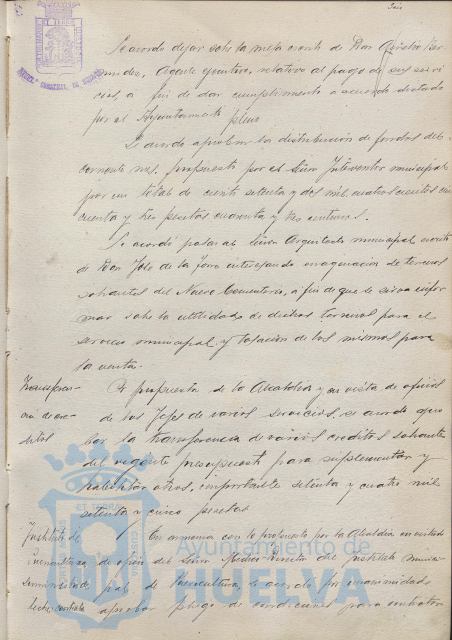 Se acordó dejar sobre la mesa escrito de Don
Agente ejecutivo, relativo al pago de sus servi-
cios, a fin de dar cumplimiento a acuerdo
por el Ayuntamiento pleno
Se acordó aprobar la distribución de fondos del
corriente mes, propuesta por el Señor Interventor municipal
por un total de ciento setenta y dos mil cuatrocientos cin-
cuenta y tres pesetas cuarenta y tres centimos.
Se acordó pasar al Señor Arquitecto municipal escrito
de Don de la interesando enagenación de terrenos
sobrantes del Nuevo Cementerio, a fin de que se sirva infor-
mar sobre la utilidad de dichos terrenos para el
servicio municipal y tasación de los mismos para
la venta.
Transferen-
cia de cré-
ditos
A propuesta de la Alcaldía y en vista de oficios
de los Jefes de varios servicios, se acordó apro-
bar la transferencia de varios creditos sobrantes
del vigente presupuesto para suplementar y
habilitar otros, importante setenta y cuatro mil
setenta y cinco pesetas
Instituto de
En armonía con lo propuesto por la Alcaldía en vista
de oficio del Señor Medico-Director del Instituto munici-
pal de Puericultura, se acordó por unanimidad
aprobar pliego de condiciones para contratar
Ayuntamiento de
HUELVA